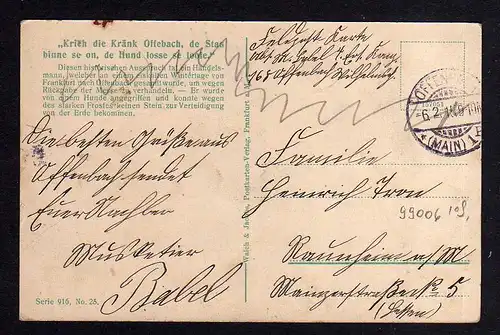 „Krieh die Kränk Offebach, de Staa
binne se on, de Hund losse se lofe“
Diesen historischen Ausspruch tat ein Handels-
mann, welcher an einem kalten Wintertage von
Frankfurt nach Offenbach gesandt wurde, um wegen
Rückgabe der Messe zu verhandeln. — Er wurde
von einem Hunde angegriffen und konnte wegen
des starken Frostes keinen Stein, zur Verteidigung
von der Erde bekommen.
Die besten Grüße aus
Offenbach sendet
Euer Nachbar
Musketier
Babel
Serie 916, No. 26.
Postkarten-Verlag, Frankfurt
Feldpost Karte
168 Offenbach
OFFENB
6.2.
*(MAIN)1
Familie
Heinrich Tron
99006
Raunheim a/M
Mainzerstraße No 5
(Hessen)